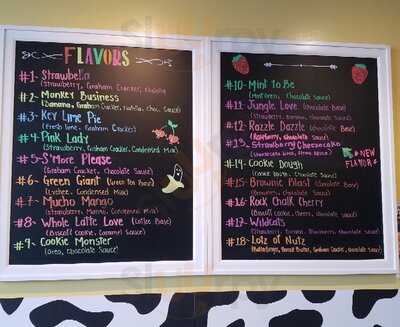 FLAVORS
#1- Strawbella
(Strawberry, Graham Cracker, Nutella)
#2- Monkey Business
(Banana, Graham Cracker, Nutella, Choc. Sauce)
#3- Key Lime Pie
(Fresh lime, Graham Cracker)
#4- Pink Lady
(Strawberry, Graham Cracker, Condensed Milk)
#5- S'More Please
(Graham Cracker, Chocolate Sauce)
#6- Green Giant (Green Tea Base)
(Lychee, Condensed Milk)
#7- Mucho Mango
(Strawberry, Mango, Condensed Milk)
#8- Whole Latte Love (Coffee Base)
(Biscoff Cookie, Caramel Sauce)
#9- Cookie Monster
(Oreo, Chocolate Sauce)
#10- Mint To Be
(Mint Oreo, Chocolate Sauce)
#11- Jungle Love (Chocolate Base)
(Strawberry, Banana, Chocolate Sauce)
#12- Razzle Dazzle (Chocolate Base)
(Raspberry, Chocolate Sauce)
#13- Strawberry Cheesecake
#NEW FLAVOR#
#14- Cookie Dough
(Cookie Dough, Chocolate Sauce)
#15- Brownie Blast (Chocolate Base)
(Brownie, Chocolate Sauce)
#16- Rock Chalk Cherry
(Biscoff Cookie, Cherry, Chocolate Sauce)
#17- Wildcats
(Strawberry, Banana, Blueberry, Chocolate Sauce)
#18- Lotz of Nutz
Peanut Butter, Graham Cracker, Chocolate Sauce)